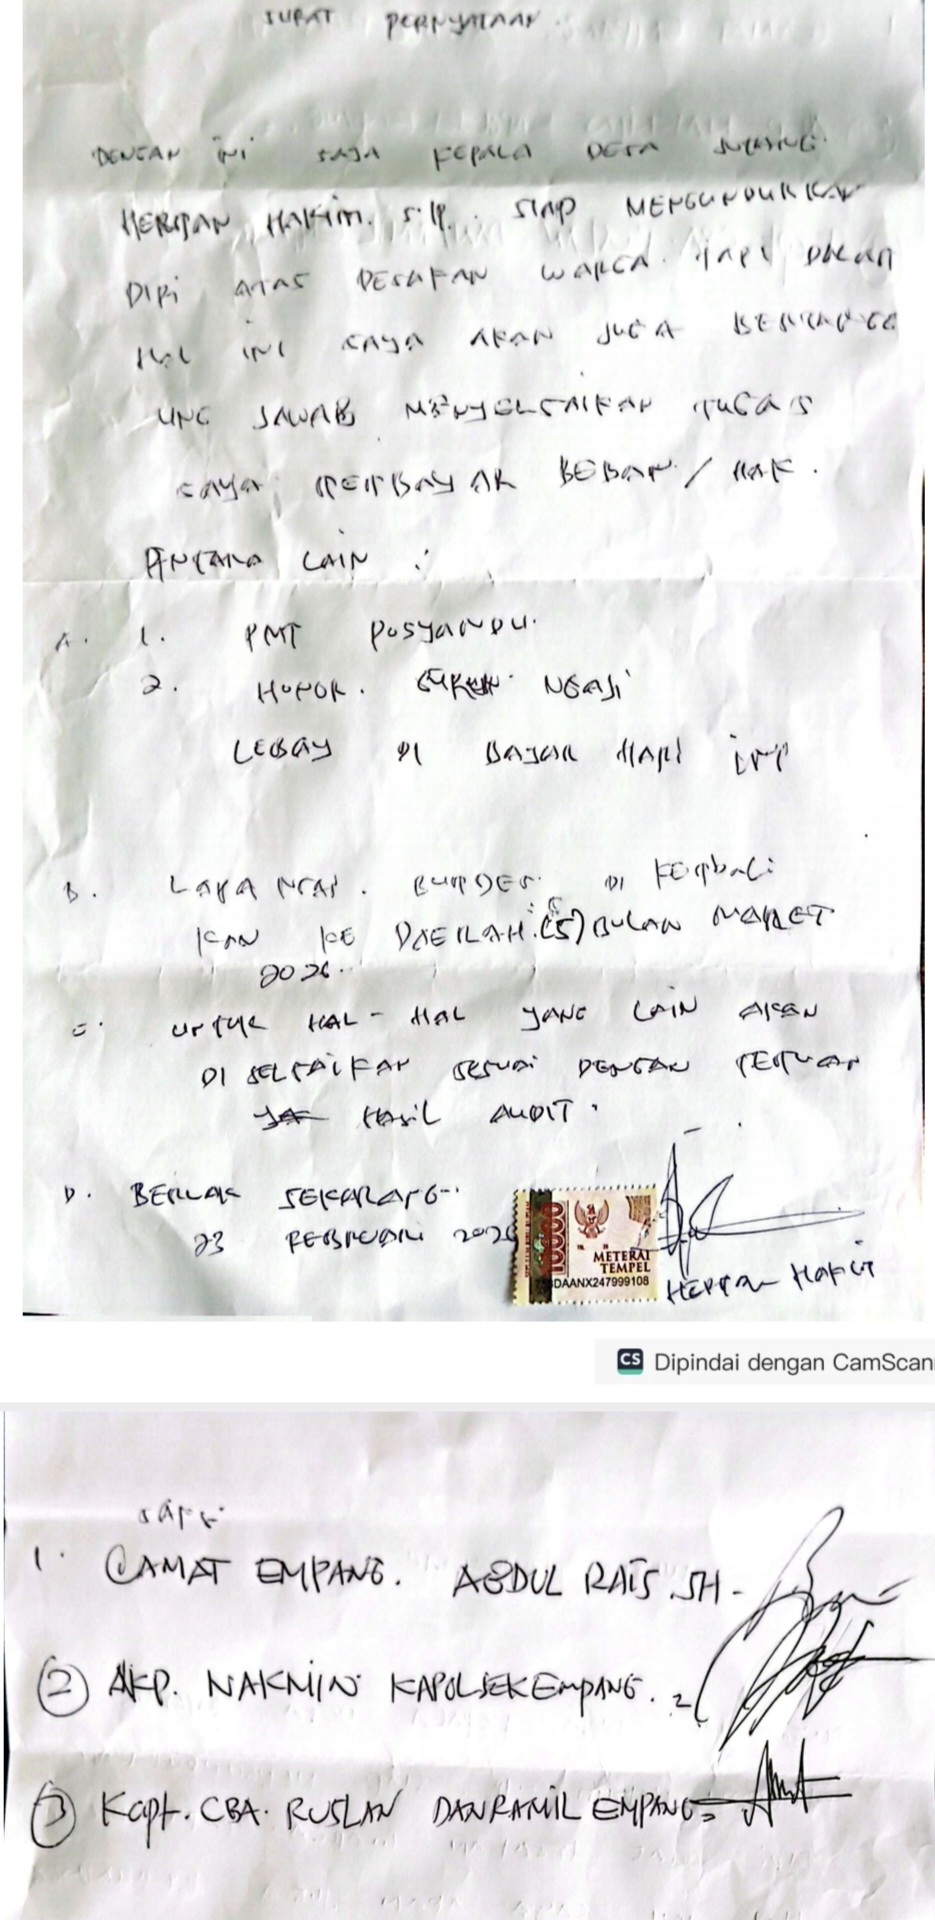 SURAT PERNYATAAN.
DENGAN INI SAJA KEPALA DESA
HERMAN HAKIM. S.IP. SIAP MENGUNDURKAN
DIRI ATAS DESAKAN WARGA. TAPI DALAM
HAL INI SAYA AKAN JUGA BERTANGG
UNG JAWAB MENYELSAIKAN TUGAS
SAYA MEMBAYAR BEBAN / HAK.
ANTARA LAIN :
A. 1. PMT POSYANDU.
2. HONOR. GURUH. NGAJI
LEBAY DI BAYAR HARI INI
B. BUMDES. DI KEMBALI
KAN KE DAERAH. (5) BULAN MARET
2026.
C. UNTUK HAL - HAL YANG LAIN AKAN
DI SELSAIKAN SESUAI DENGAN TEMUAN
HASIL AUDIT.
D. BERLAK SEKARANG.
23 FEBRUARI 2026
10000
METERAI
TEMPEL
DAANX247999108
HERMAN HAKIM
CS Dipindai dengan CamScan
SAKSI
1. CAMAT EMPANG. ABDUL RAIS .SH -
2 AKP. NAKMIN KAPOLSEK EMPANG. 2
3 Kapt. CBA. RUSLAN DANRAMIL EMPANG